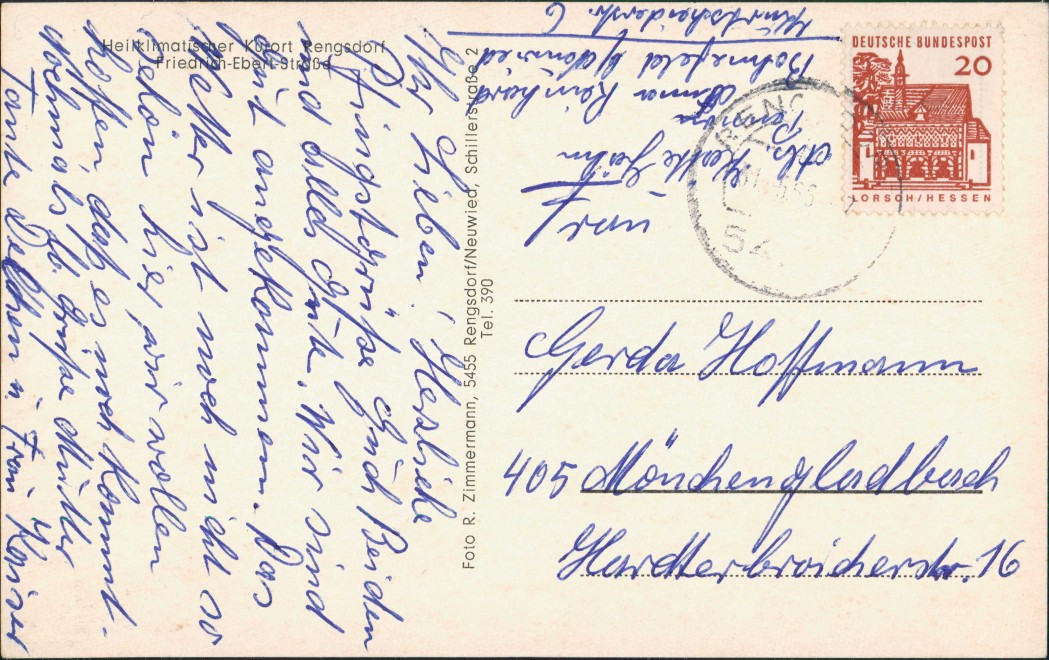 Heilklimatischer Kurort Rengsdorf
Friedrich-Ebert-Straße
Ihr Lieben! Herzliche
Pfingstgrüße Euch Beiden
und alles Gute. Wir sind
gut angekommen. Das
Wetter ist noch nicht so
schön hier, wir wollen
hoffen das es noch kommt.
nochmals lb. Grüße Mutter
Tante Dellchen u. Frau Kaiser
Foto R. Zimmermann, 5455 Rengsdorf/Neuwied, Schillerstraße 2
Tel. 390
Abs. Käthe
Pension
Anna Reinhard
Bonefeld b/Neuwied
6
DEUTSCHE BUNDESPOST
20
LORSCH/HESSEN
RENGSDORF
54
Frau
Gerda Hoffmann
405 Mönchengladbach
Hardterbroicherstr. 16